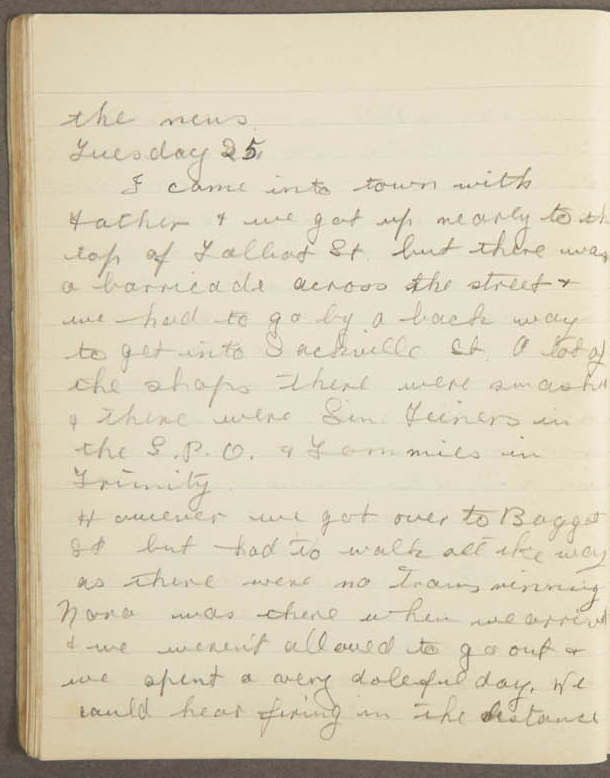 the news.
Tuesday 25.
I came into town with
Father & we got up nearly to th
top of Talbot St. but there was
a barricade across the street &
we had to go by a back way
to get into Sackville St. A lot of
the shops there were smashd
& there were Sin Feiners in
the G.P.O. & Tommies in
Trinity.
However we got over to Baggot
St but had to walk all the way
as there were no trams running
Nora was there when we arrivd
& we weren't allowed to go out &
we spent a very doleful day. We
could hear firing in the distance